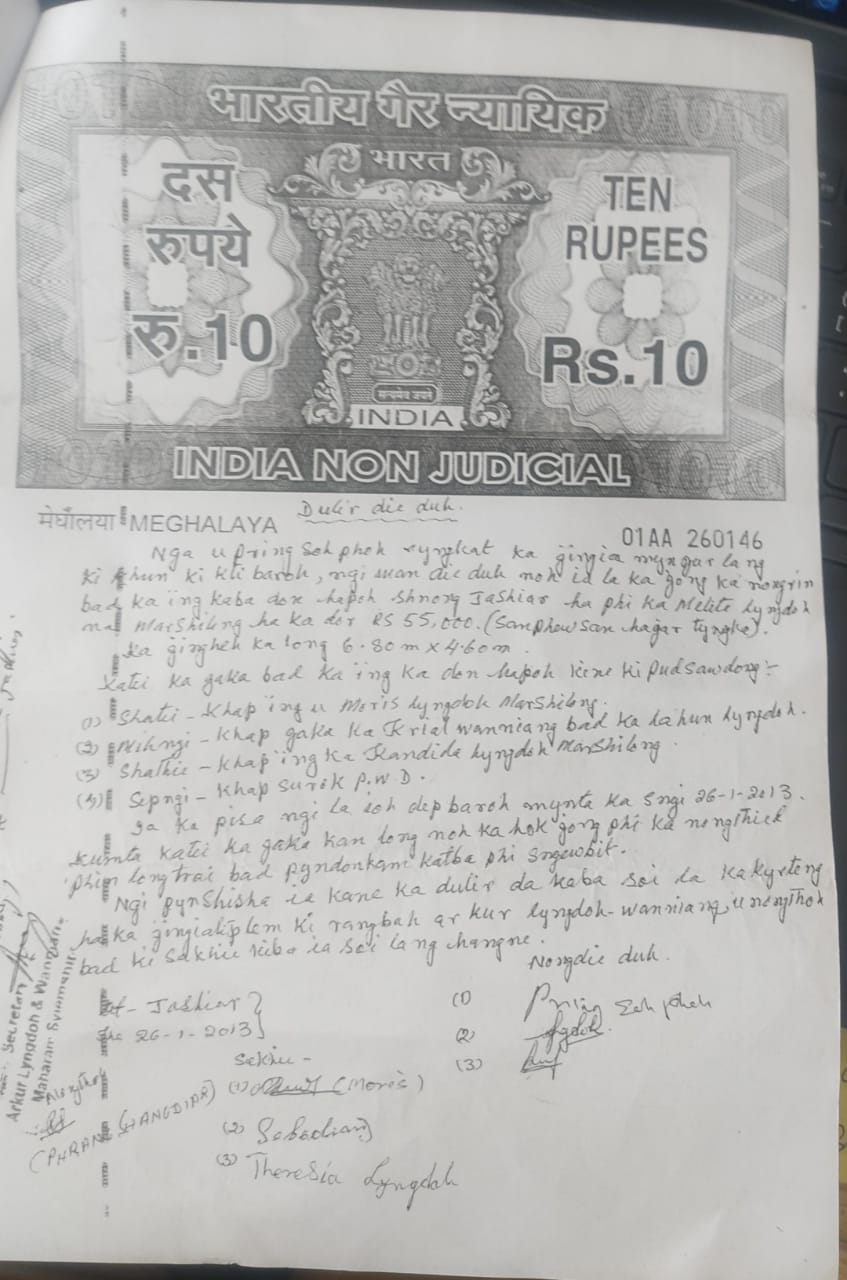 भारतीय गैर न्यायिक
भारत
दस
रुपये
रु.10
TEN
RUPEES
Rs.10
सत्यमेव जयते
INDIA
INDIA NON JUDICIAL
मेघालया MEGHALAYA
01AA 260146
Dulir die duh.
Nga u Pring Sohphoh syngkat ka jingia mynjur lang
ki khun ki kti baroh, ngi suan die duh noh ia la ka jong ka nongrin
bad ka ing kaba don hapoh Shnong Jashiar ha phi ka Melite Lyngdoh
Marshilong ha ka dor RS 55,000. (Sanphew san hajar tyngka).
Ka jingheh ka long 6.80m x 4.60m.
Katei ka jaka bad ka ing ka don hapoh kine ki pudsawdong :-
(1) Shatei - Khap ing u Moris Lyngdoh Marshilong.
(2) - Khap jaka ka Krial Wanniang bad ka Lahun Lyngdoh.
(3) Shathie - Khap ing ka Kandida Lyngdoh Marshilong.
(4) Sepngi - Khap Surok P.W.D.
Ia ka pisa ngi la ioh dep baroh mynta ka sngi 26-1-2013.
Kumta katei ka jaka kan long noh ka hok jong phi ka nongthied
phin long trai bad pyndonkam katba phi sngewbit.
Ngi pynshisha ia kane ka dulir da kaba soi ia ka kyrteng
ha ka jingiakiplem ki rangbah ar kur Lyngdoh-Wanniang, u nongthoh
bad ki sakhi kiba ia soi lang hangne.
Nongdie duh.
Jashiar
26-1-2013
(1) Pring Sohphoh
(2)
(3)
Sakhi -
(1) (Moris)
(2)
(3) Theresia Lyngdoh
Nongthoh
(PHRANG HANGDIAR)
Secretary
Arkur Lyngdoh & Wanniang
Maharam Syiemship